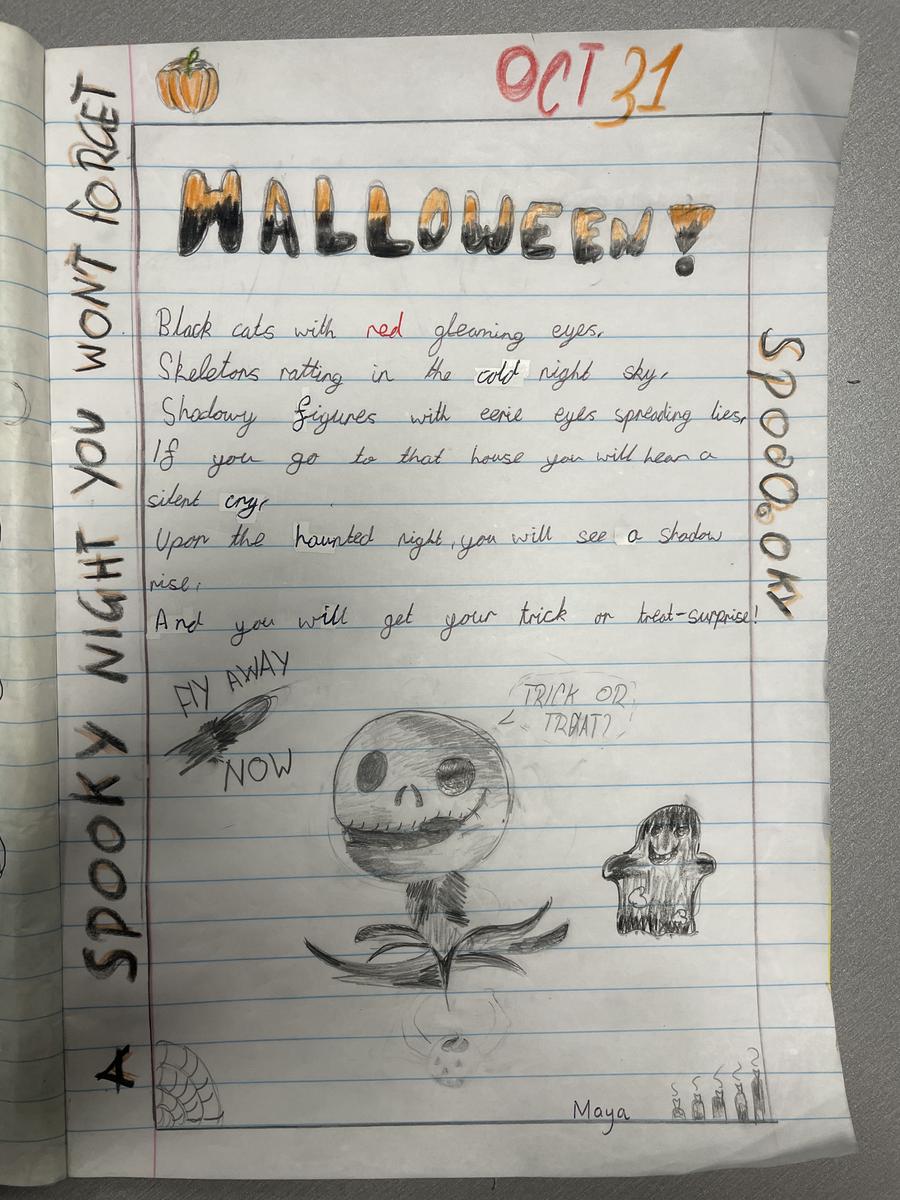 OCT 31
HALLOWEEN!
Black cats with red gleaming eyes,
Skeletons ratting in the cold night sky,
Shadowy figures with eerie eyes spreading lies,
If you go to that house you will hear a
silent cry,
Upon the haunted night, you will see a shadow
rise,
And you will get your trick or treat-surprise!
A SPOOKY NIGHT YOU WONT foRGET
SpoooooKY
FlY AWAY
NOW
TRICK OR
TREAT?
Maya